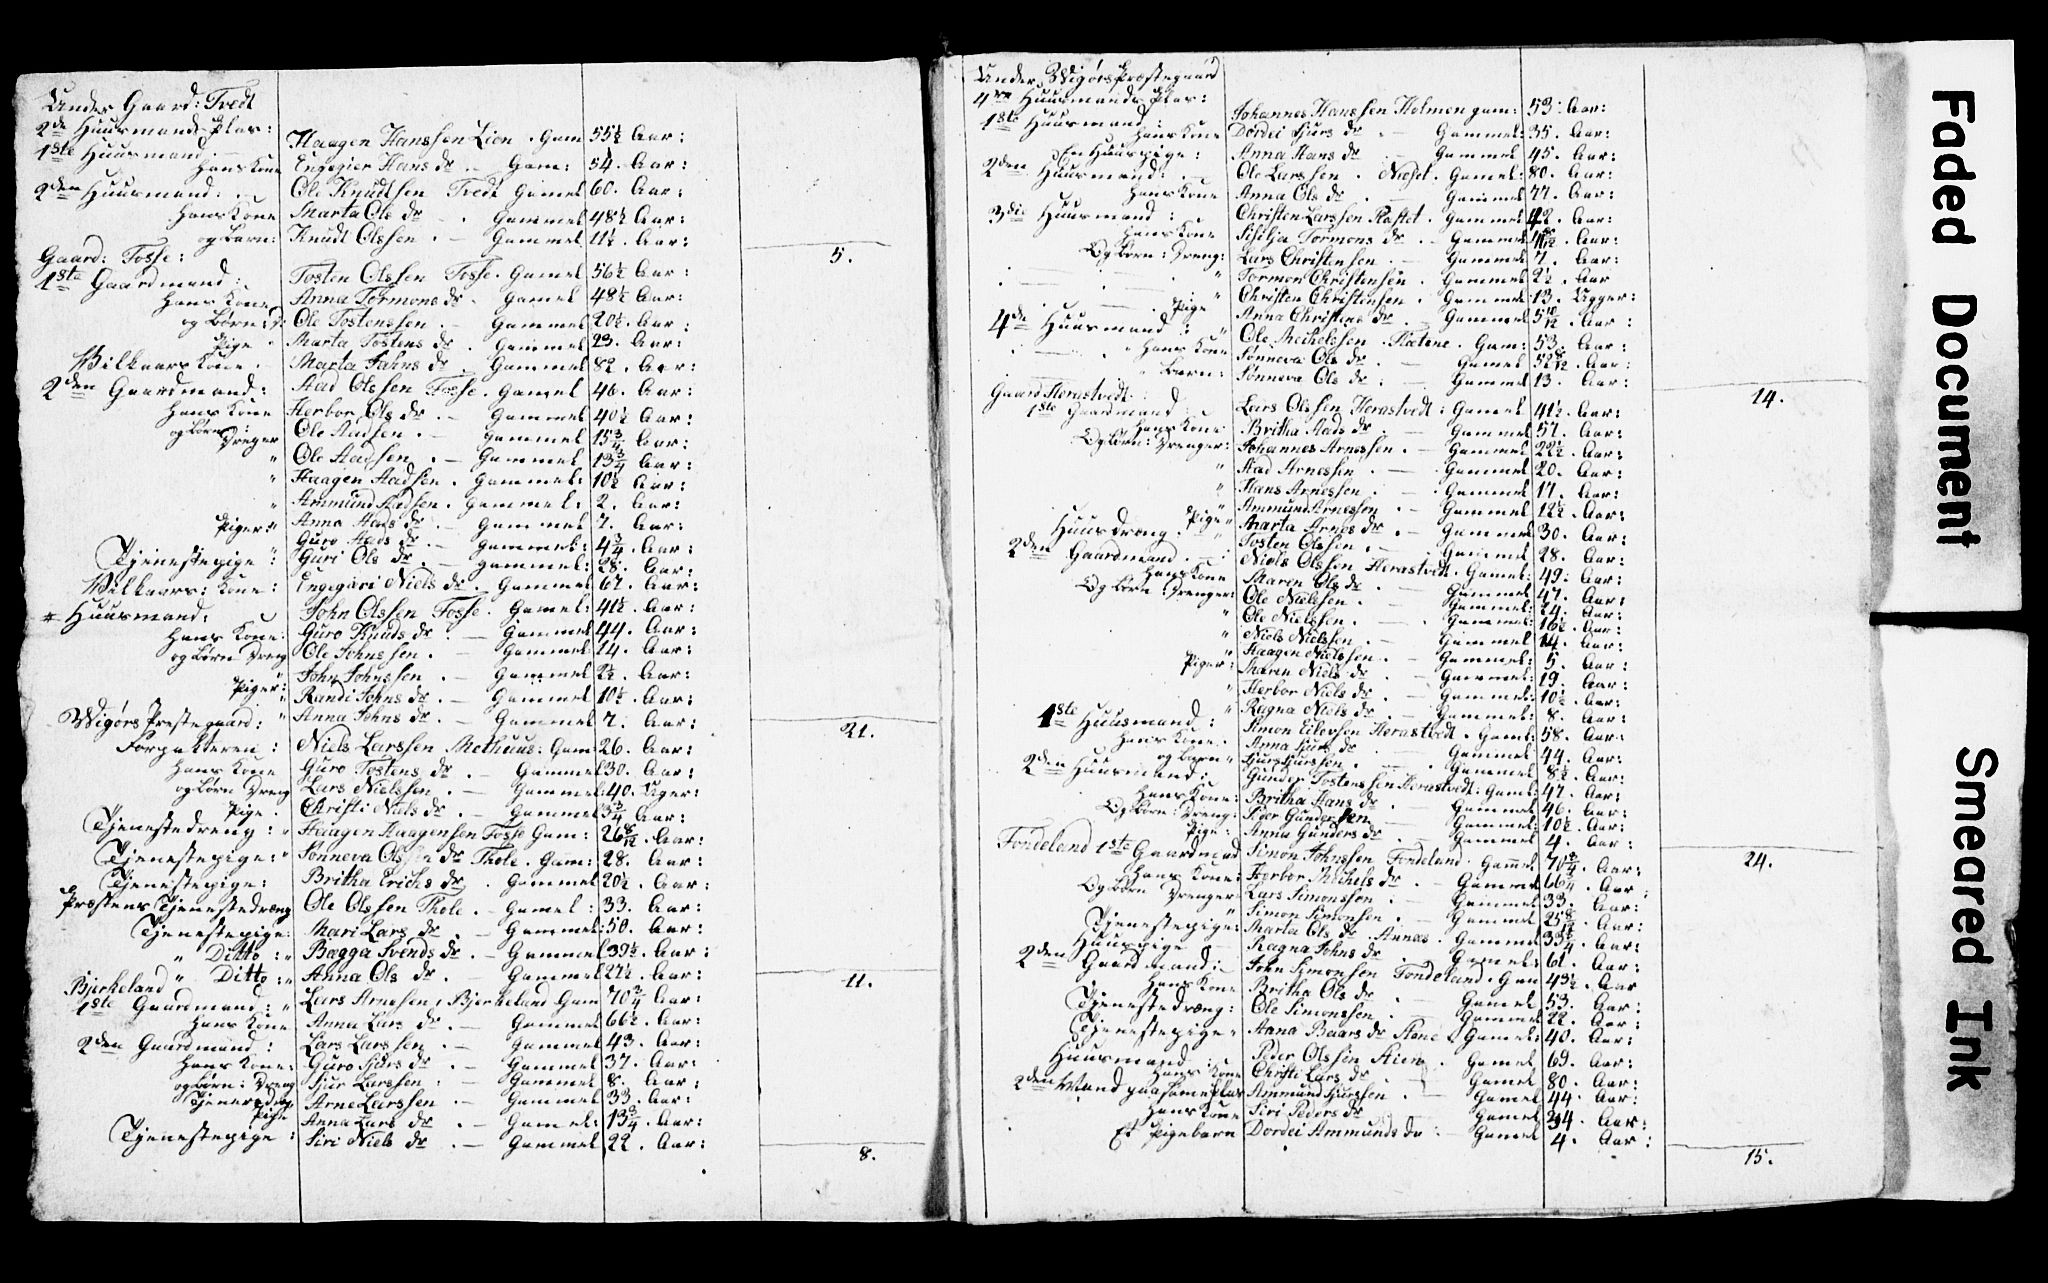 Under Gaard: Tvedt
2de Huusmands Plas:
1ste Huusmand. — Haagen Hanssen Lien. Gam 55½ Aar:
Hans Kone Engegier Hans dr. — Gam: 54. Aar:
2den Huusmand. Ole Knudtsen Tvedt Gamel 60. Aar:
Hans Kone Marta Ols dr — . Gammel 48½ Aar:
og barn: Knudt Olssen. — Gammel 11½. Aar:
5.
Gaard: Fosse:
1ste Gaardmand: Tosten Olssen Fosse. Gamel 56½ Aar:
Hans Kone Anna Tormons dr. Gamel 48½ Aar:
og Børn: D: Ole Tostenssen. — Gammel 20½. Aar:
Pige. Marta Tostens dr. Gammel 23. Aar:
Wilkaars Kone. Marta Jahns dr. Gammel 82 Aar:
2den Gaardmand: Aad Olssen Fosse. Gamel 46. Aar:
Hans Kone Herbor Ols dr. — Gammel 40½ Aar:
og Børn: Drenger Ole Aadsen. — Gammel 15¾ Aar:
" Ole Aadsen. — Gammel 13¾ Aar:
" Haagen Aadsen. Gammel: 10½ Aar:
" Ammund Aadsen. Gammel: 2. Aar:
Piger: " Anna Aads dr. — Gammel 7. Aar:
Guro Aads dr. — Gammel: 4¾. Aar:
Tjenestepige: Guri Ols dr. — gammel: 28. Aar:
Wilkaars: Kone: Engegari Niels dr. Gammel 67. Aar:
* Huusmand: John Olssen Fosse. Gamel: 41½. Aar:
Hans Kone: Guro Knuds dr. — Gammel 44. Aar:
og børn Dreng Ole Johnssen. — Gammel: 14. Aar:
John Johnssen. — Gammel 2½. Aar:
Piger: Randi Johns dr. — Gammel 10½. Aar:
" Anna Johns dr. — Gammel 7. Aar:
21.
Wigørs Prestegaard:
Forpakteren: Niels Larssen Methuus: Gam 26. Aar:
Hans Kone Guro Tostens dr. — Gammel 30. Aar:
og børn Dreng Lars Nielssen. — Gammel: 40. Uger:
Pige. Christi Niels dr. — Gammel 3¾ Aar:
Tjenestedreng: " Haagen Haagensen Fosse Gam: 26 8/12. Aar:
Tjenestepige: " Sønneva Olssen dr Thole. Gam: 28. Aar:
Tjenestepige: Britha Erichs dr. Gammel 20½. Aar:
Præstens Tjenestedræng Ole Olssen Thole. — Gamel: 33. Aar:
Tjenestepige: Mari Lars dr. — Gammel: 50. Aar:
" Ditto: " Bagga Svends dr. — Gammel 39½. Aar:
" Ditto: " Anna Ols dr. — Gammel 27½. Aar:
11.
Bjerkeland
1ste Gaardmand: " Lars Arnesen, Bjerkeland Gam 70¾ Aar:
Hans Kone Anna Lars dr. — Gammel 66½. Aar:
2den Gaardmand: Lars Larssen. — Gammel 43. Aar:
Hans Kone: Guro Sjurs dr. — Gammel 37. Aar:
og børn: Dreng Sjur Larssen. — Gammel 8. Aar:
Arne Larssen — Gammel 33. Aar:
Pige Anna Lars dr. — Gamel: 13¾. Aar:
Tjenestepige: Siri Niels dr. — Gammel 22. Aar:
8.
Under Wigørs Præstegaard
4re Huusmands Plas:
1ste Huusmand: Johannes Hanssen Holmen gam: 53. Aar:
Hans Kone Dordei Sjurs dr. — Gammel: 35. Aar:
En Huuspige: Anna Hans dr — Gammel 45. Aar:
2den Huusmand: Ole Larssen. Næset. Gamel: 80. Aar:
Hans Kone Anna Ols dr. — Gammel 77. Aar:
3die Huusmand: Christen Larssen Gammel 42. Aar:
Hans Kone Sisilja Tormons dr. — Gammel Aar:
Og børn: Dreng: Lars Christensen. — Gammel 7. Aar:
" Tormon Christensen. Gammel 2½. Aar
" Christen Christensen. Gammel: 13. Ugger:
Pige Anna Christens dr. — Gammel 5 10/12. Aar:
4de Huusmand: Ole Michelssen Gam: 53. Aar:
Hans Kone Sønneva Ols dr. — Gamel 52 8/12 Aar:
Barn: Sønneva Ols dr. — Gammel 13. Aar:
14.
Gaard Herastvedt:
1ste Gaardmand: Lars Olssen Herastvedt: Gamel 41½. Aar:
Hans Kone Britha Aads dr. — Gammel 57. Aar:
Og børn: Drenger: Johannes Arnessen. — Gammel 22½. Aar:
" Aad Arnessen. — Gammel 20. Aar:
" Hans Arnessen. — Gammel 17. Aar:
" Ammund Arnesson — Gammel 12½. Aar:
Pige " Marta Arnes dr. — Gammel 30. Aar:
Huusdræng. Tosten Olssen. — Gammel 28. Aar:
2den Gaardmand. — Niels Olssen Herastvedt. Gamel: 49. Aar:
Hans Kone Maren Ols dr. — Gammel 47. Aar:
Og børn: Drenger: Ole Nielssen. — Gammel: 24. Aar:
" Ole Nielssen. — Gammel: 16½. Aar:
" Niels Nielssen — Gammel 14. Aar:
" Haagen Nielssen. — Gammel: 5. Aar:
Piger: Maren Niels dr. — Gammel: 19. Aar:
" Herbor Niels dr. — Gammel: 10½. Aar:
" Ragna Niels dr. — Gammel: 8. Aar:
1ste Huusmand: Simon Eilevsen Herastvedt. Gamel: 58. Aar:
Hans Kone. Anna Sjurs dr. — Gammel 44. Aar:
og barn " Sjur Sjurssen. — Gammel 8½. Aar:
2den Huusmand: Gunder Tostenssen Herastvedt. Gamel: 47. Aar:
Hans Kone: Britha Hans dr. — Gammel 46. Aar:
Og børn: Dreng: Peder Gundersen — Gammel: 10½. Aar:
Pige: Anna Gunders dr — Gammel 4. Aar:
24.
Fondeland 1ste Gaardmand Simon Johnssen Fondeland. Gamel 70¾. Aar:
Hans Kone: Herbor Michels dr. — Gammel 66¼ Aar
Og børn Drenger Lars Simonssen — Gammel 33. Aar:
" Simon Simonsen. — Gammel 25 8/12 Aar:
Tjenestepige: Marta Ols dr. Gammel 33¼. Aar:
Huuspige Ragna Johns dr. — Gamel: 61. Aar:
2den Gaardmand: John Simonsen Fondeland. Gam 43½. Aar
Hans Kone Britha Ols dr. — Gamel 53. Aar:
Tjenestedræng: Ole Simonssen. — Gammel 22. Aar:
Tjenestepige: Anna Baars dr Gamel: 40. Aar:
Huusmand: Peder Olssen Gamel 69. Aar:
Hans Kone Christi Lars dr — Gamel 80. Aar:
2den Mand paa samme Plas Ammund Sjurssen. — Gamel 44. Aar:
Hans Kone Siri Peders dr — Gamel 34. Aar:
Et Pigebarn Dordei Ammunds dr. — Gamel 4. Aar:
15.
Faded Document
Smeared Ink